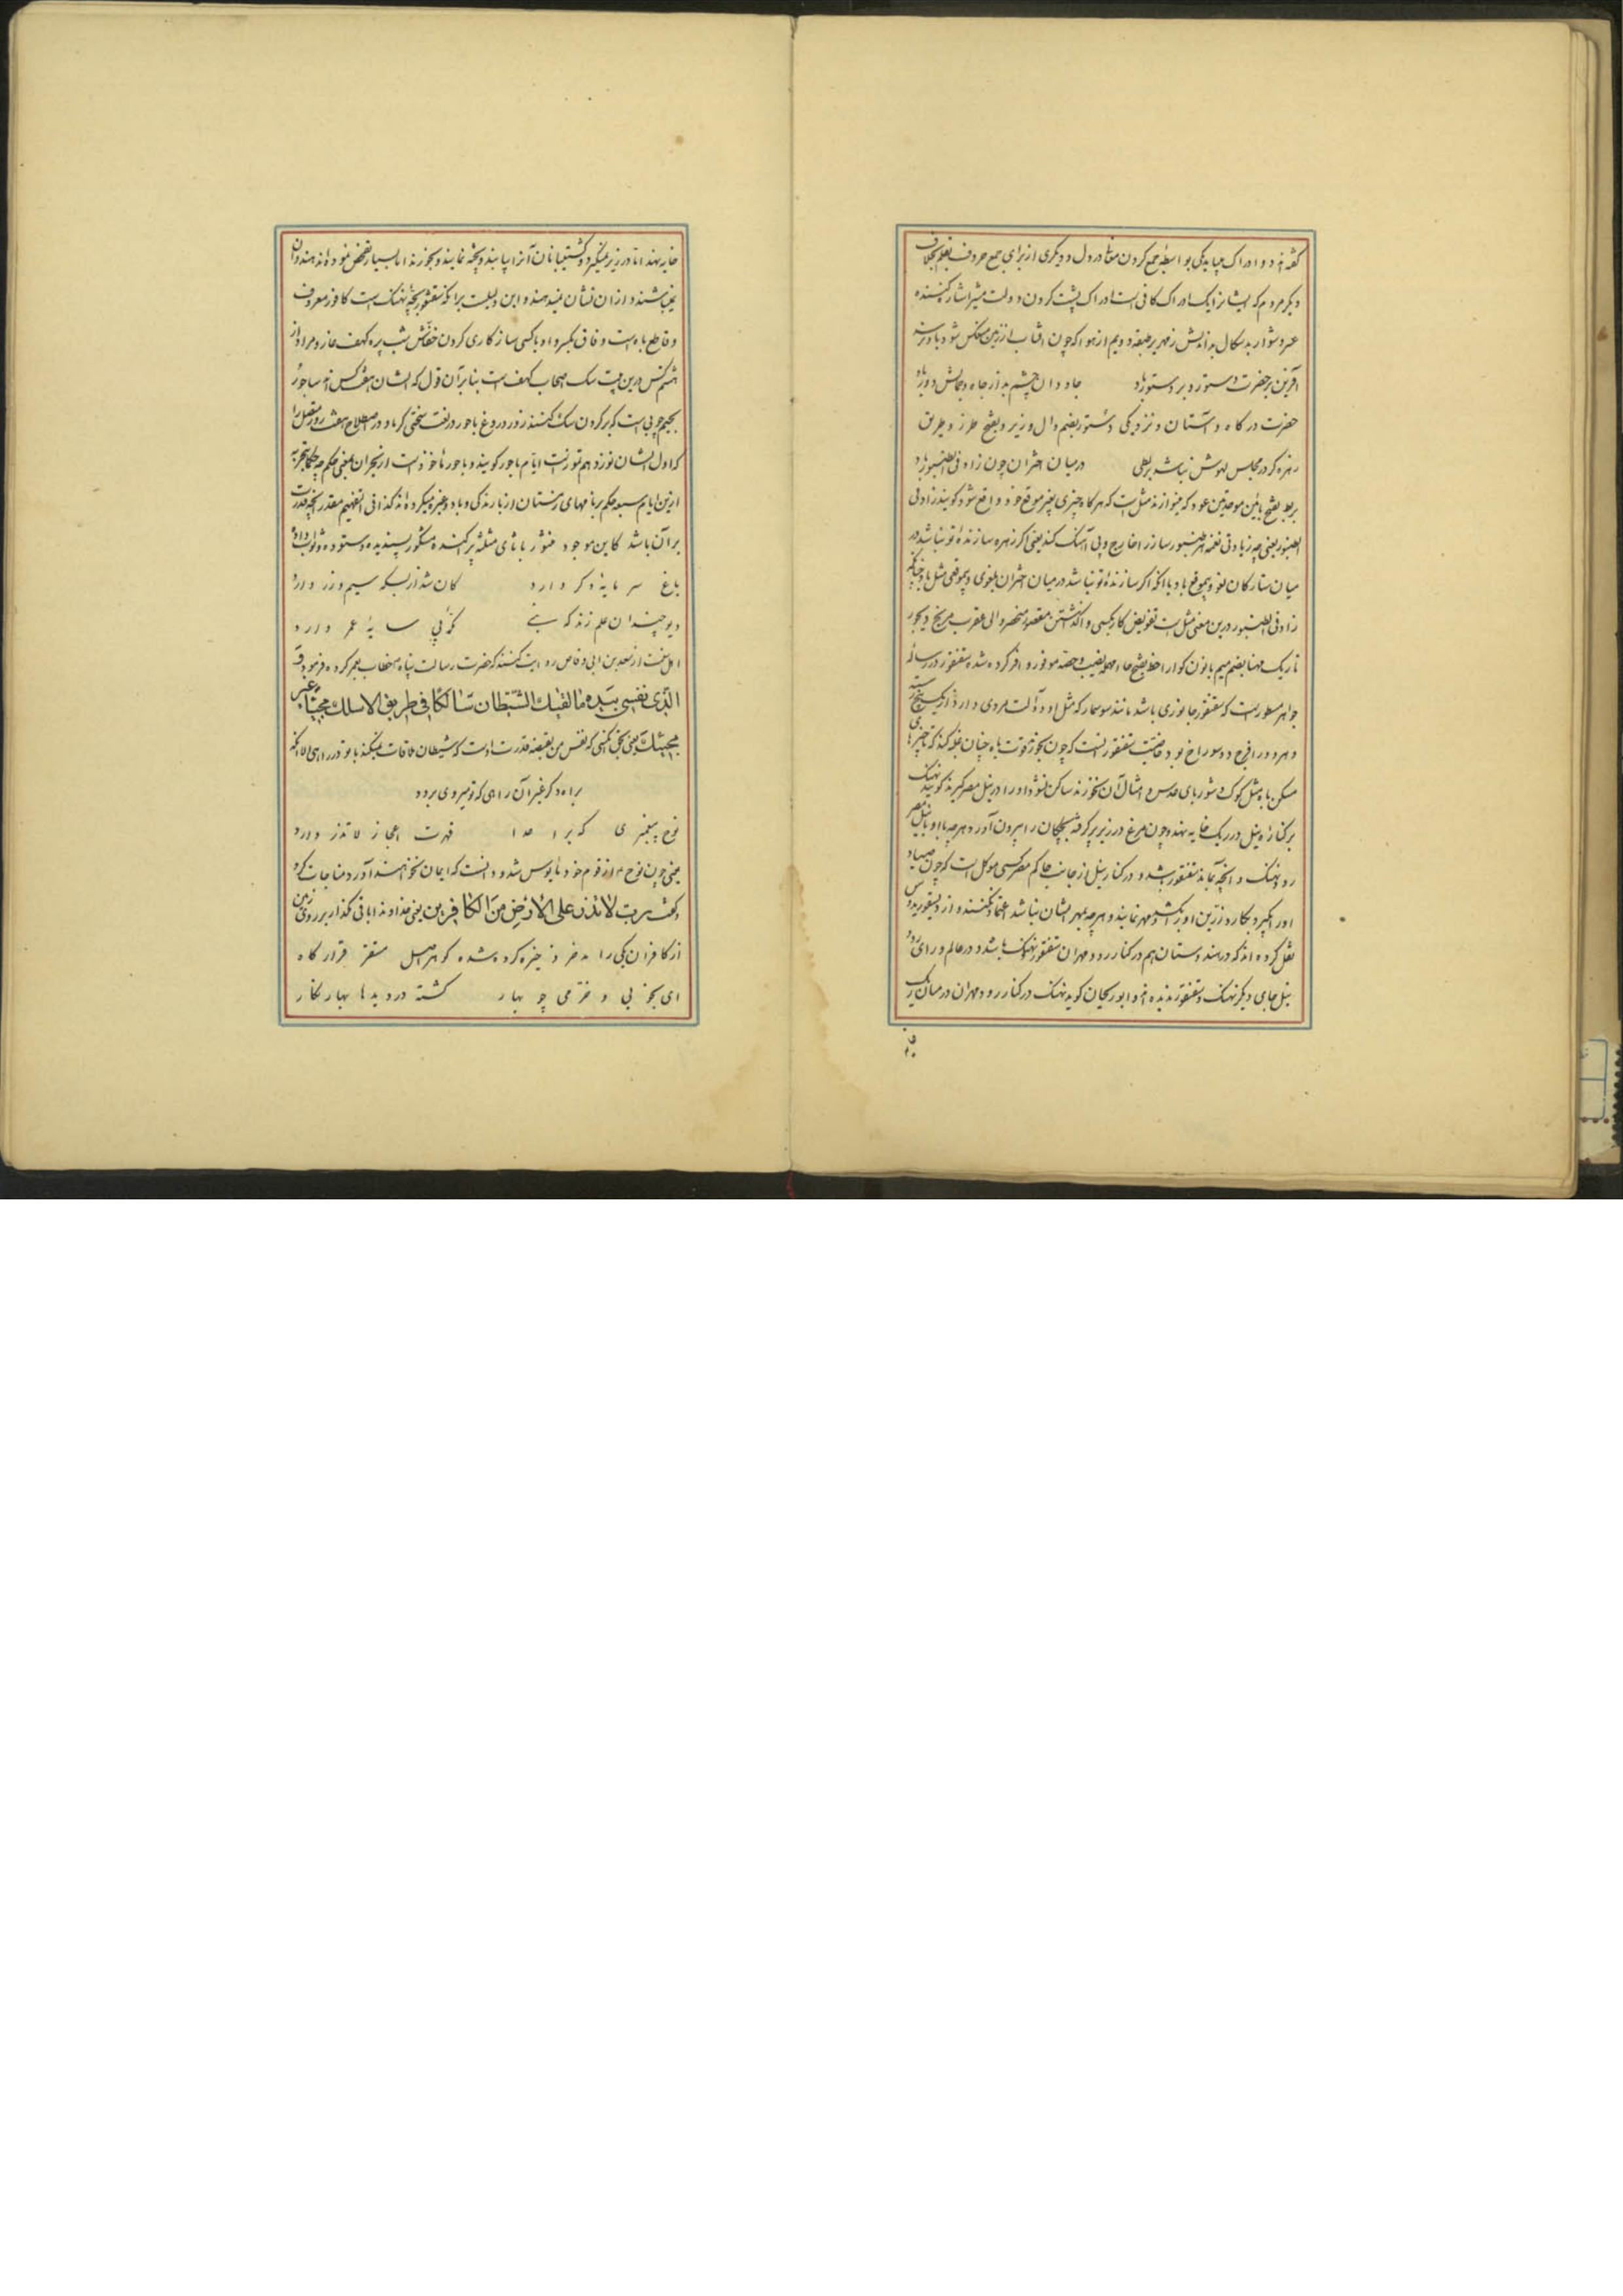 گفته‌اند دو ادراک میباید یکی بواسطه جمع کردن معنا در دل و دیگری از برای جمع حروف بقلم بخلاف
دیگر مردم که ایشانرا یک ادراک کافی است ادراک پشت کردن دولت مشیر اشارت کننده
عسر دشوار بدسگال بداندیش زمهریر طبقه دویم از هوا که چون افتاب از زمین منعکس شود باو نرسد
آفرین بر حضرت دستور و بر دستور باد جاودان چشم بد از جاه و جمالش دور باد
حضرت درگاه و آستان و نزدیکی دستور بضم دال وزیر و بفتح طرز و طریق
زهره گر در مجلس لهوش نباشد بربطی در میان اختران چون زاد فی الطنبور باد
بربط بفتح بائین موحدتین عود که مینوازند مثل است که هرگاه چیزی بغیر موقع خود واقع شود گویند زاد فی
الطنبور یعنی چه زیادتی نغمه هر طنبور ساز را خارج و بی آهنگ کند یعنی اگر زهره سازنده تو نباشد در
میان ستارگان لغو و بیموقع باد یا آنکه اگر سازنده تو نباشد در میان اختران بلغوی و بیموقعی مثل باد چنانکه
زاد فی الطنبور درین معنی مثل است تفویض کار بکسی واگذاشتن مقصور منحصر والی عقرب مریخ دیجور
تاریک مهنا بضم میم با نون گوارا حظ بفتح حاء مهمله نصیب و حصه موفور وافر کرده شده سقنقور در رساله
جواهر مسطور است که سقنقور جانوری باشد مانند سوسمار که مثل او دو آلت مردی دارد از یک بیخ رسته
و هر دو را فرج دو سوراخ بود خاصیت سقنقور آنست که چون بخورند قوت باه چنان غلبه کند که تا چیزهای
مسکن باه مثل کوک و شوربای عدس و امثال آن نخورند ساکن نشود و او را در نیل مصر گیرند گویند نهنک
بر کناره نیل در ریک خایه نهد و چون مرغ در زیر پر گرفته بچکان را بیرون آورد هر چه با او بنیل مصر
رود نهنک و آنچه بماند سقنقور باشد و در کنار نیل از جانب حاکم مصر کسی موکل است که چون صیاد
او را گیرد بکارد زرین او را بکشد و مهر نمایند و هر چه بمهر ایشان نباشد اعتماد نکنند و از دیسقوریدوس
نقل کرده‌اند که در هندوستان هم در کنار رود مهران سقنقور و نهنک باشد و در عالم ورای رود
نیل جای دیگر نهنک و سقنقور ندیده‌اند و ابوریحان گوید نهنک در کنار رود مهران در میان ریک
خایه نهد اما در زیر نمیگیرد و کشتیبانان آنرا یابند و پخته نمایند و بخورند اما بسیار تفحص نموده‌اند هندوان
نمیباشند و از ان نشان نمیدهند و این دلیلست برانکه سقنقور بچه نهنک است کافور معروف
و قاطع باه است وفاق بکسر واو با کسی سازگاری کردن خفاش شب پره کهف غار و مراد از
هشتم کس درین بیت سک اصحاب کهف است بنابر آن قول که ایشان هفت کس‌اند ساجور
بجیم چوبی است که بر گردن سک کنند زور دروغ باحور در لغت سختی گرما و در اصطلاح هفت روز متصل را
که اول ایشان نوزدهم تموز است ایام باحور گویند و باحور ماخوذ است از بحران بمعنی حکم چه حکما بتجربه
ازین ایام سبعه حکم بر ماههای زمستان از بارندگی و باد و غیره میکرده‌اند کذا فی التفهیم مقدر آنچه قدرت
بر آن باشد کاین موجود منثور با ثای مثلثه پراکنده مشکور پسندیده و ستوده و ثواب داده
باغ سرمایهٔ دگر دارد کان شد از بسکه سیم و زر دارد
دیو چندان علم زند که نبی گذری سایهٔ عمر دارد
اهل سنت از سعد بن ابی وقاص روایت کنند که حضرت رسالت پناه مخاطب بعمر کرده فرمود و
الذی نفسی بیده ما لقیك الشیطان سالکا فی طریق الا سلك فجا غیر
فجك یعنی بحق آنکسی که نفس من بقبضه قدرت اوست که شیطان ملاقات نمیکند با تو در راهی الا آنکه
براه د که غیر آن راهی که تو میروی برود
نوح پیغمبری که بر اعدا قهرت اعجاز لا تذر دارد
یعنی چون نوح از قوم خود مایوس شد و دانست که ایمان نخواهند آورد مناجات کرد
و گفت رب لا تذر علی الارض من الکافرین یعنی خداوندا باقی مگذار بر روی زمین
از کافران یکی را مدخر ذخیره کرده شده گوهر اصل مستقر قرارگاه
ای بخوبی و خرمی چو بهار گشته در دیدها بهار نگار